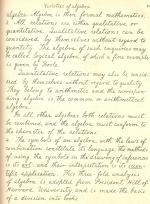 Varieties of Algebra
algebra. Algebra is then formal mathematics.
All relations are either qualitative or
quantitative. Qualitative relations can be
considered by themselves without regard to
quantity. The algebra of such enquiries may
be called logical algebra, of which a fine example
is given by
Quantitative relations may also be consid-
ered by themselves without regard to quality.
They belong to arithmetic and the correspon-
ding algebra is the common or arithmetical
algebra.
In all other algebras both relations must
be combined, and the algebra must conform to
the character of the relations.
The symbols of an algebra, with the laws of
combination constitute its language; the methods
of using the symbols in the drawing of inferences
is its art; and their interpretation is its scien-
tific application. This three-fold analysis
of algebra is adopted from President Hill of
Harvard University and is made the basis
of a division into books.